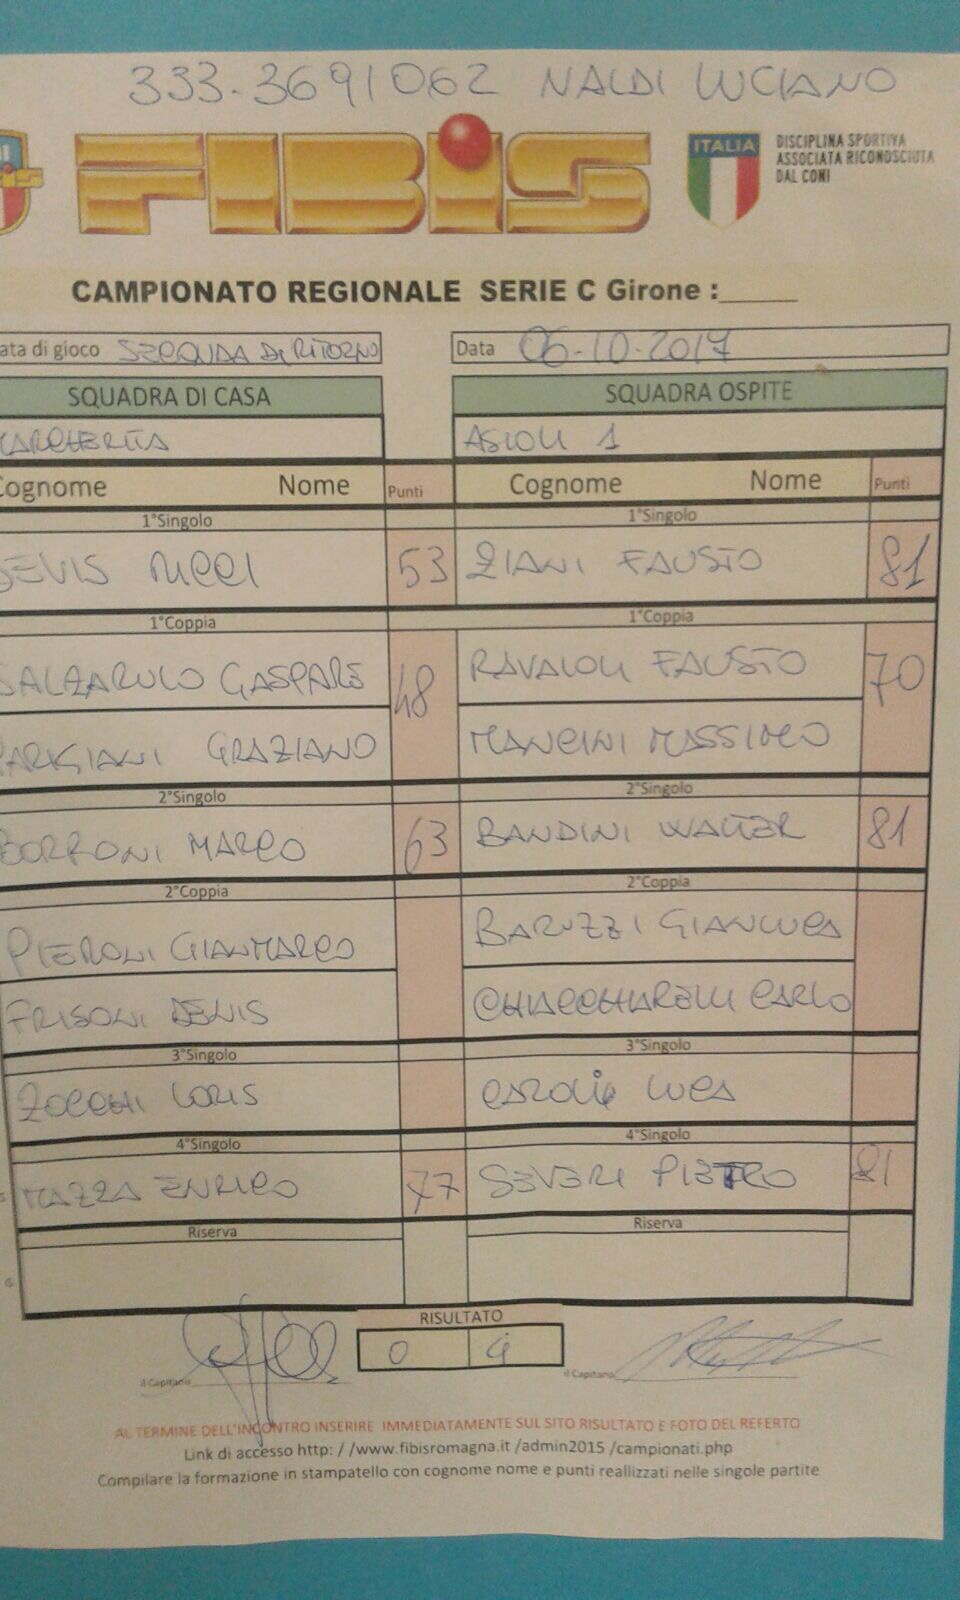 333-3691062 NALDI LUCIANO
FIBiS
ITALIA
DISCIPLINA SPORTIVA
ASSOCIATA RICONOSCIUTA
DAL CONI
CAMPIONATO REGIONALE SERIE C Girone :______
ata di gioco SECONDA DI RITORNO Data 06-10-2017
SQUADRA DI CASA SQUADRA OSPITE
MARGHERITA ASIOLI 1
Cognome Nome Punti Cognome Nome Punti
1°Singolo 1°Singolo
DEVIS RICCI 53 ZIANI FAUSTO 81
1°Coppia 1°Coppia
SALZARULO GASPARE 48 RAVAIOLI FAUSTO 70
PARIGIANI GRAZIANO MANCINI MASSIMO
2°Singolo 2°Singolo
BORRONI MARCO 63 BANDINI WALTER 81
2°Coppia 2°Coppia
PIERONI GIANMARCO BARUZZI GIANLUCA
FRISONI DENIS CHIACCHIARELLI CARLO
3°Singolo 3°Singolo
ZOCCHI LORIS CAROLI LUCA
4°Singolo 4°Singolo
MAZZA ENRICO 77 SEVERI PIETRO 81
Riserva Riserva
RISULTATO
0 4
il Capitano il Capitano
AL TERMINE DELL'INCONTRO INSERIRE IMMEDIATAMENTE SUL SITO RISULTATO E FOTO DEL REFERTO
Link di accesso http: / /www.fibisromagna.it /admin2015 /campionati.php
Compilare la formazione in stampatello con cognome nome e punti reallizzati nelle singole partite